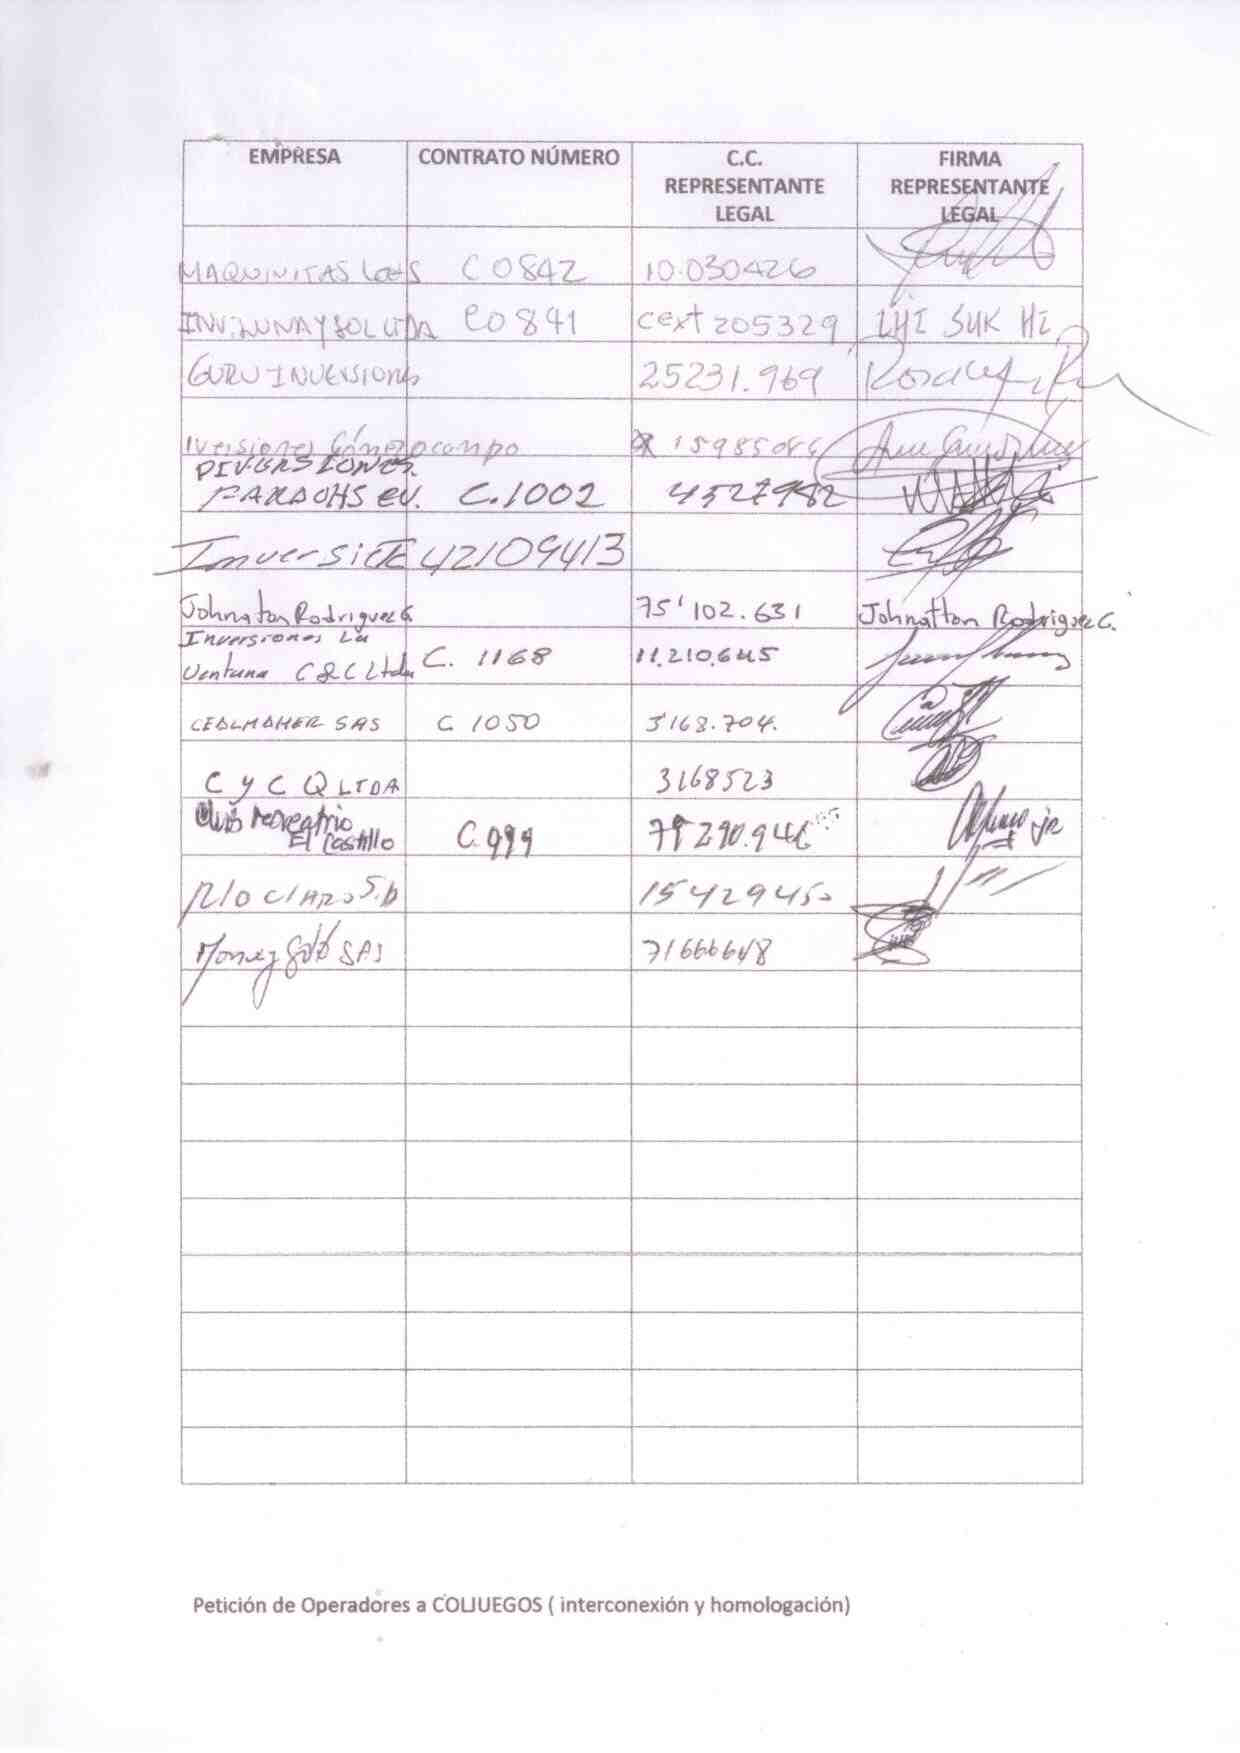 EMPRESA CONTRATO NÚMERO C.C. FIRMA
REPRESENTANTE REPRESENTANTE
LEGAL LEGAL
MAQUINITAS C0842 10.030426
INV. LUNA Y SOL LTDA C0841 cext 205329 LHI SUK HI
GURU INVERSIONES 25231.969
Iversiones Gómez ocampo
DIVERSIONES
FARAOHS C.1002 4527982
42109413
Johnatan Rodriguez G. 75'102.631 Johnatton Rodriguez G.
Inversiones La
Ventana C & C Ltda C. 1168 11.210.645
CEALMAHER SAS C 1050 3168.704.
C y C Q LTDA 3168523
Club recreativo
El Castillo C.999 79290.946 Jr
Rio CLARO S.A 15429450
Money Gold SAS 71666648
Petición de Operadores a COLJUEGOS ( interconexión y homologación)